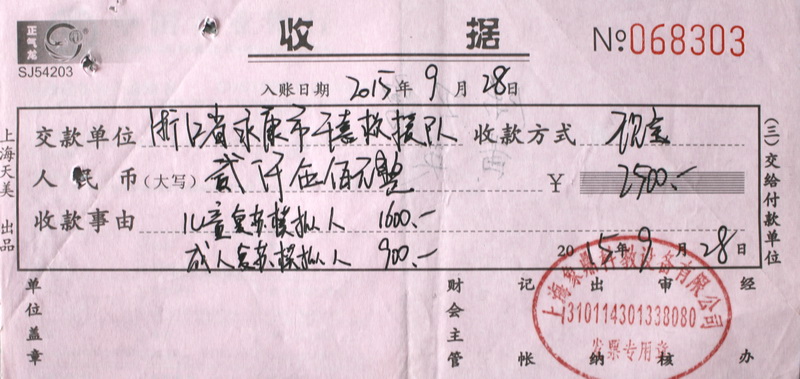 正气龙
SJ54203
收 据
No 068303
入账日期 2015年9月28日
交款单位 浙江省永康市千喜救援队 收款方式
人民币(大写) 贰仟伍佰元整 ¥ 2500.-
收款事由 儿童复苏模拟人 1600.-
成人复苏模拟人 900.-
2015年9月28日
上海天美 出品
(三)交给付款单位
单位盖章
财会主管
记帐
出纳
审核
经办
310114301338080
发票专用章